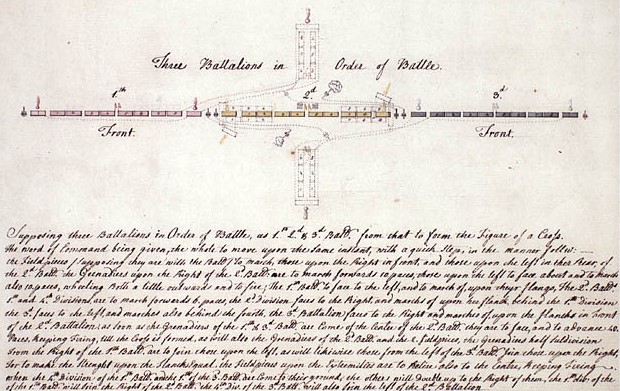 Three Battalions in Order of Battle.
1th 2d 3d
Front. Front.
Supposing three Battalions in Order of Battle, as 1th 2d & 3d Batt. from that to form the Figure of a Cross.
the word of Command being given, the whole to move upon the same instant, with a quick Step, in the manner follow:
the Fieldpieces (supposing they are with the Batt.) to march, those upon the Right in front, and those upon the left in ther Rear, of
the 2d Batt. the Grenadiers upon the Right of the 2d Batt. are to march forwards 10 paces, those upon the left to face about and to march
also 10 paces, wheeling Both a little outward and to fire; the 1th Batt. to face to the left, and to march of, upon theyr flangs, the 2d Batt.
1th and 4th Divisions, are to march forwards 6 paces, the 2d Division, faces to the Right, and marches of upon the flank behind the 1th division
the 3d faces to the left, and marches also behind the fourth, the 3d Battalion, faces to the Right and marches of, upon the flanks in Front
of the 2d Battalion; as soon as the Grenadiers of the 1th & 3d Batt. are Come of the Center of the 2d Batt. they are to face, and to advance 40
Paces, Keeping Firing, till the Cross is formed, as will also the Grenadiers of the 2d Batt. and the 2 fieldpices, the Grenadiers half subdivision
from the Right of the 1th Batt. are to join those upon the left, as will likewise those from the left of the 3d Batt. join those upon the Right,
for to make the Strenght upon the Flanck equal. the Fieldpices upon the Extremities are to Retire also to the Center, Keeping Firing
when the 2d Division of the 1th Batt. and the 1th of the 3d Batt. are Come to their ground, the others will double up to the Right of them, the
of the 1th Batt. will join the Right of the 2d Batt. the of the 3d Batt. will also join the left of the 2d Battalion